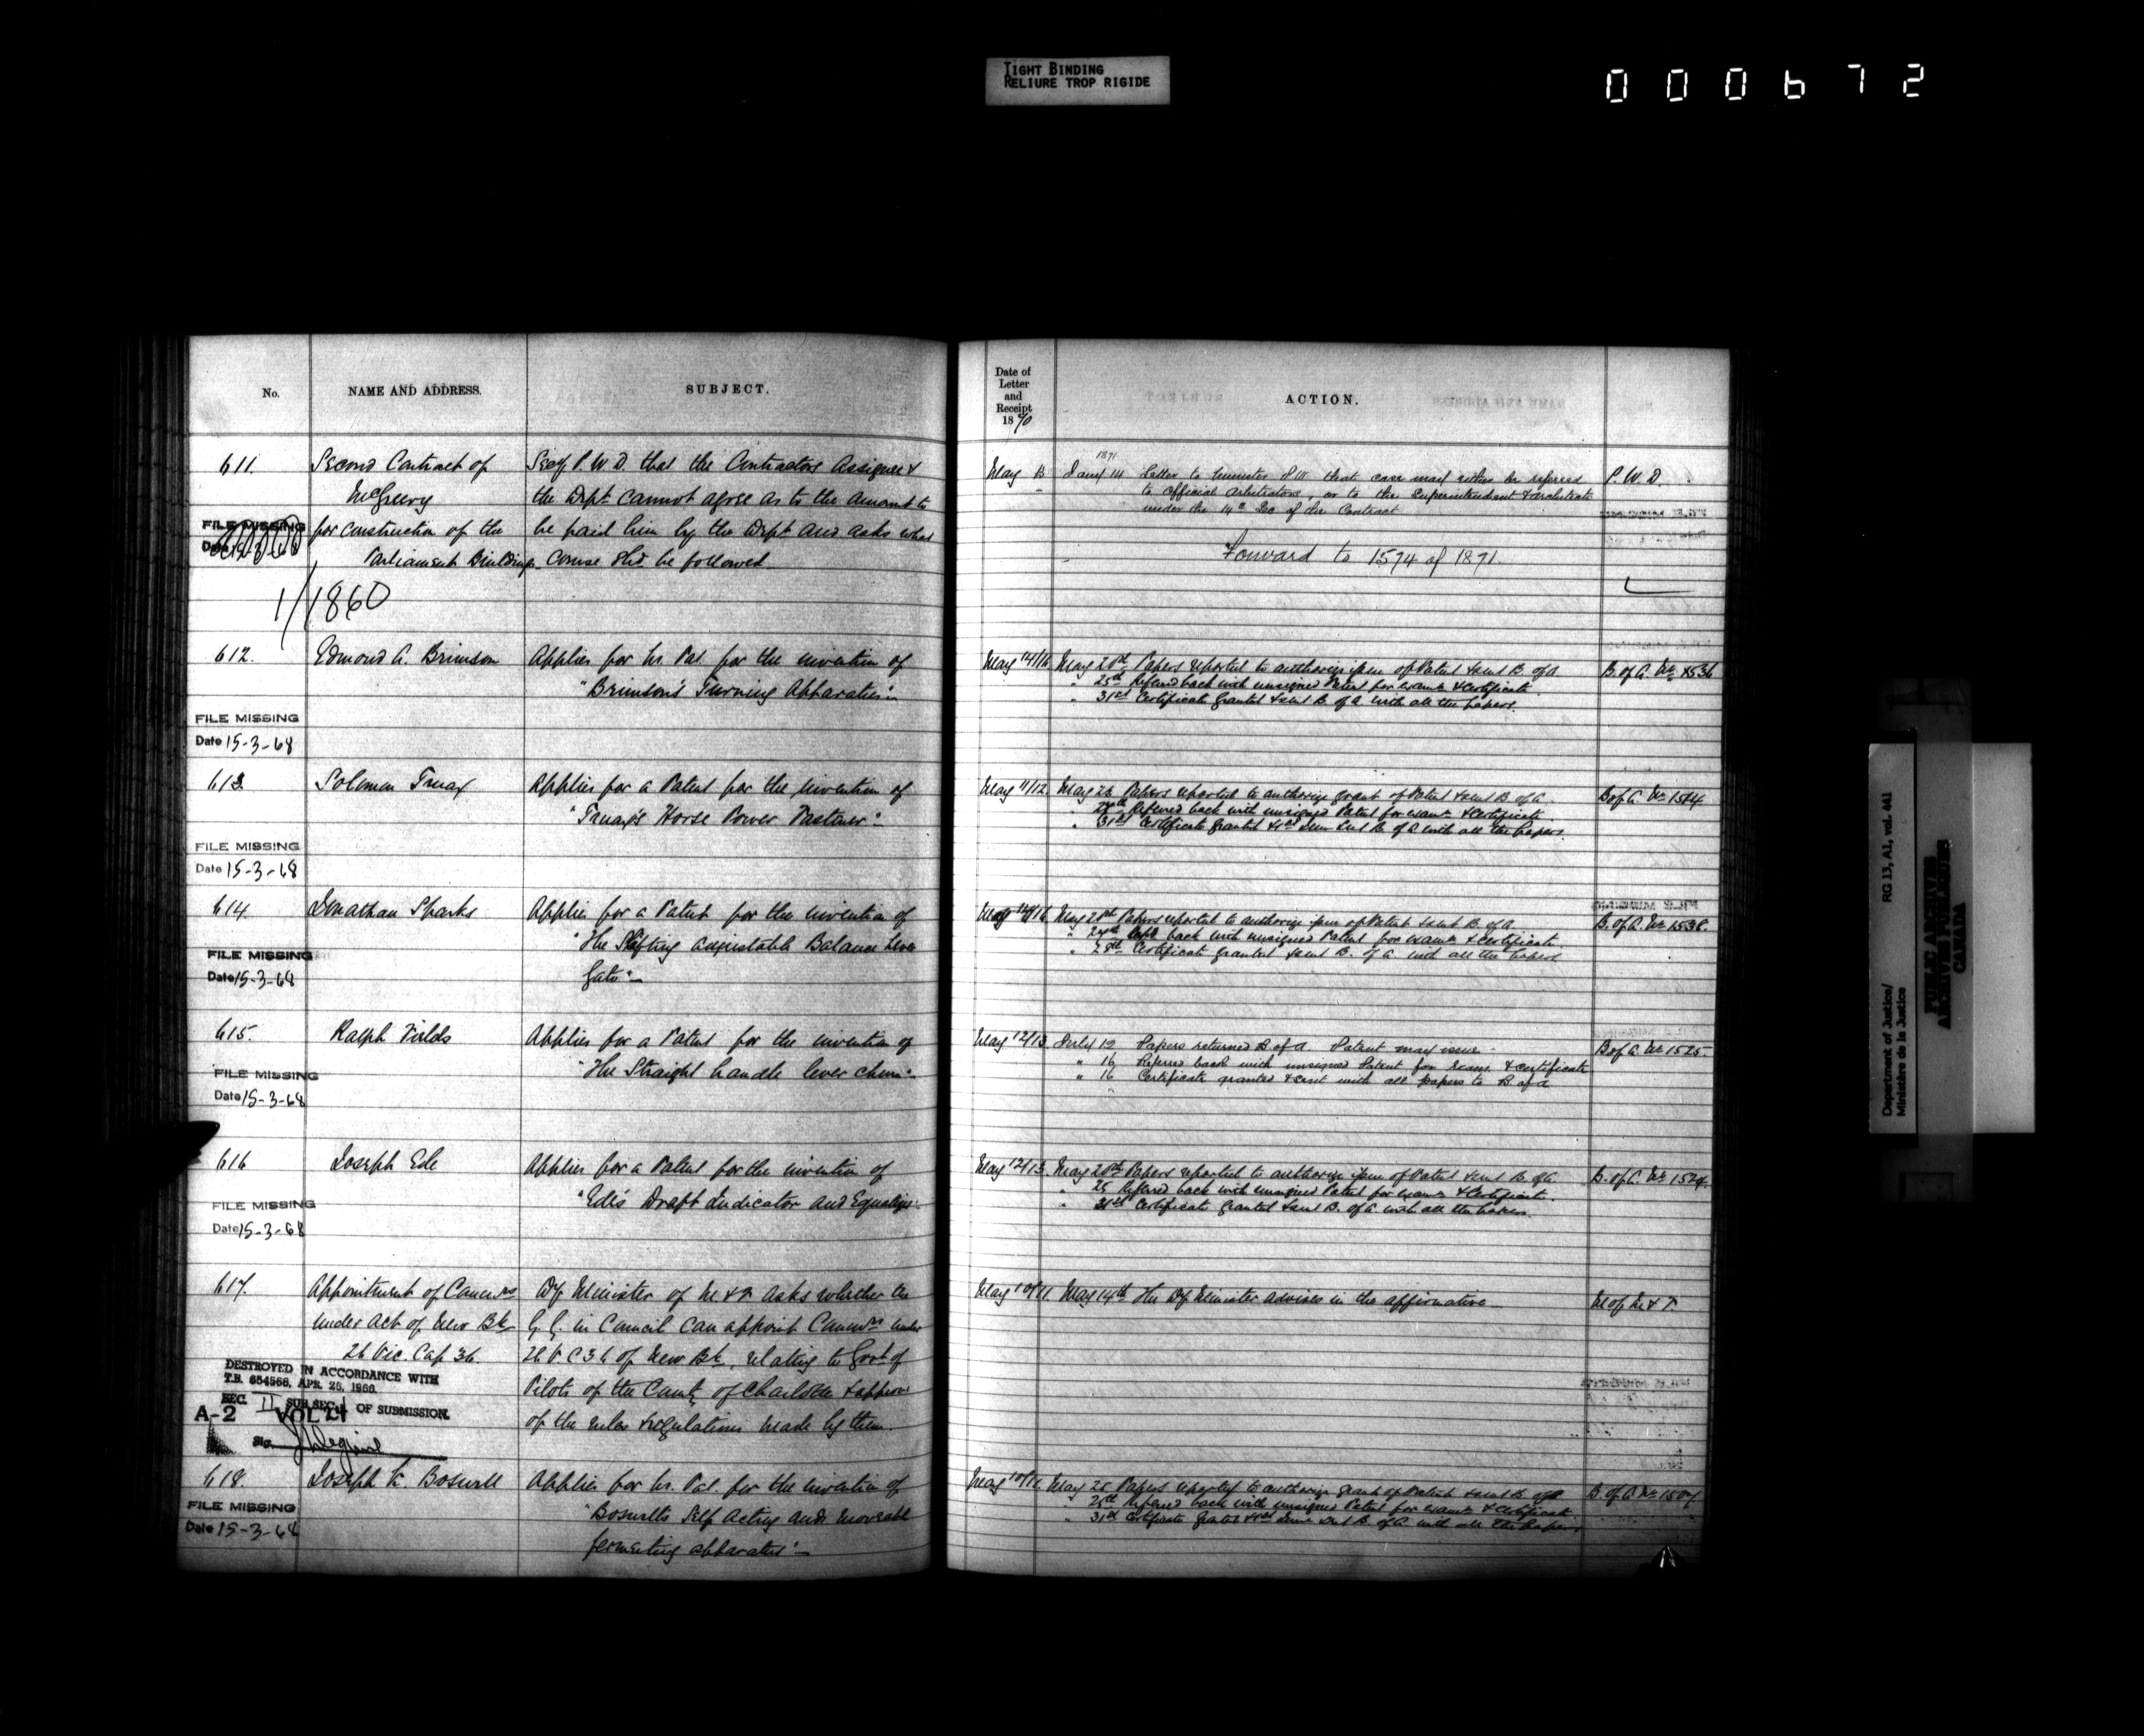 TIGHT BINDING
RELIURE TROP RIGIDE
000672
No.
NAME AND ADDRESS.
SUBJECT.
611.
Second Contract of
McGreevy
for construction of the
Parliament Buildings
FILE MISSING
1/1860
Secy P.W.D. that the Contractors Assignee &
the Dept cannot agree as to the amount to
be paid him by the Dept and asks what
Course shd. be followed
612.
Edmond A. Brimson
Applies for Lr. Pat. for the invention of
"Brimson's Turning Apparatus"
FILE MISSING
Date 15-3-68
613.
Solomon Truax
Applies for a Patent for the invention of
"Truax's Horse Power Fastener"
FILE MISSING
Date 15-3-68
614.
Jonathan Sparks
Applies for a Patent for the invention of
"The Shifting adjustable Balance Lever
Gate"
FILE MISSING
Date 15-3-68
615.
Ralph Fields
Applies for a Patent for the invention of
"The Straight handle lever churn"
FILE MISSING
Date 15-3-68
616
Joseph Ede
Applies for a Patent for the invention of
"Ede's Draft Indicator and Equalizer"
FILE MISSING
Date 15-3-68
617.
Appointment of Commrs
under Act of New Bk
26 Vic. Cap 36.
Dy Minister of M. & F. asks whether the
G. G. in Council can appoint Commrs under
26 V C 36 of New Bk, relating to Govt of
Pilots of the County of Charlotte & approve
of the rules & regulations made by them.
DESTROYED IN ACCORDANCE WITH
T.B. 654566, APR. 25, 1966.
SEC. II SUB SEC. 1 OF SUBMISSION.
A-2 VOL 21
618.
Joseph K. Boswell
Applies for Lr. Pat. for the invention of
"Boswell's Self Acting and moveable
fermenting apparatus"
FILE MISSING
Date 15-3-68
Date of
Letter
and
Receipt
1870
ACTION.
May 13
1871
Jany 14 Letter to Minister P W that case may either be referred
to Official Arbitrators, or to the Superintendent & Architect
under the 14th Sec of the Contract
P. W. D.
Forward to 1574 of 1871.
May 14/16 May 20th Papers reported to authorize issue of Patent & sent B. of A
" 25th Referred back with unsigned Patent for examn & certificate
" 31st Certificate granted & sent B. of A. with all the papers.
B. of A. No 1536
May 11/12 May 23 Papers reported to authorize grant of Patent & sent B. of A.
Referred back with unsigned Patent for examn & certificate
" 31st Certificate granted & sent B. of A with all the papers.
B of A. No 1514
May 14/16 May 20th Papers reported to authorize issue of Patent & sent B. of A
back with unsigned Patent for examn & certificate
Certificate granted & sent B. of A. with all the papers
B. of A. No 1538.
May 12/13 July 12 Papers returned B. of A. Patent may issue
" 16 Referred back with unsigned Patent for exam. & certificate
" 16 Certificate granted & sent with all papers to B of A
B of A. No 1525.
May 12/13. May 20th Papers reported to authorize issue of Patent & sent B. of A
" 25 Referred back with unsigned Patent for examn & certificate.
" 31st Certificate granted & sent B. of A. with all the papers.
B. of A. No 1524.
May 10/11. May 14th The Dy Minister advises in the affirmative
M of M & F
May 10/11 May 25 Papers reported to authorize grant of Patent & sent B. of A
" 25th Referred back with unsigned Patent for examn & certificate
" 31st Certificate granted & sent B. of A. with all the papers.
B. of A No 1507
Department of Justice/
Ministère de la Justice
RG 13, A1, vol. 441
PUBLIC ARCHIVES
ARCHIVES PUBLIQUES
CANADA